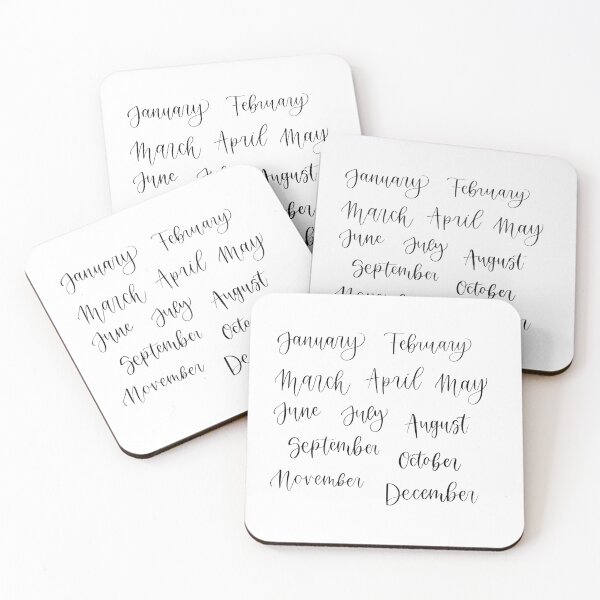 January February
March April May
June July August
October
January February
March April May
June July August
September October
January February
March April May
June July August
September
November
January February
March April May
June July August
September October
November December